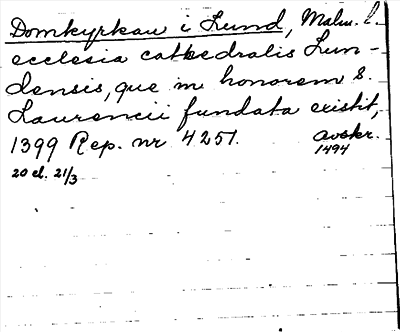 Domkyrkan i Lund, Malm. l.
ecclesia cathedralis Lun-
densis, que in honorem S.
Laurencii fundata existit,
1399 Rep. nr 4251. avskr.
1494
20 el. 21/3